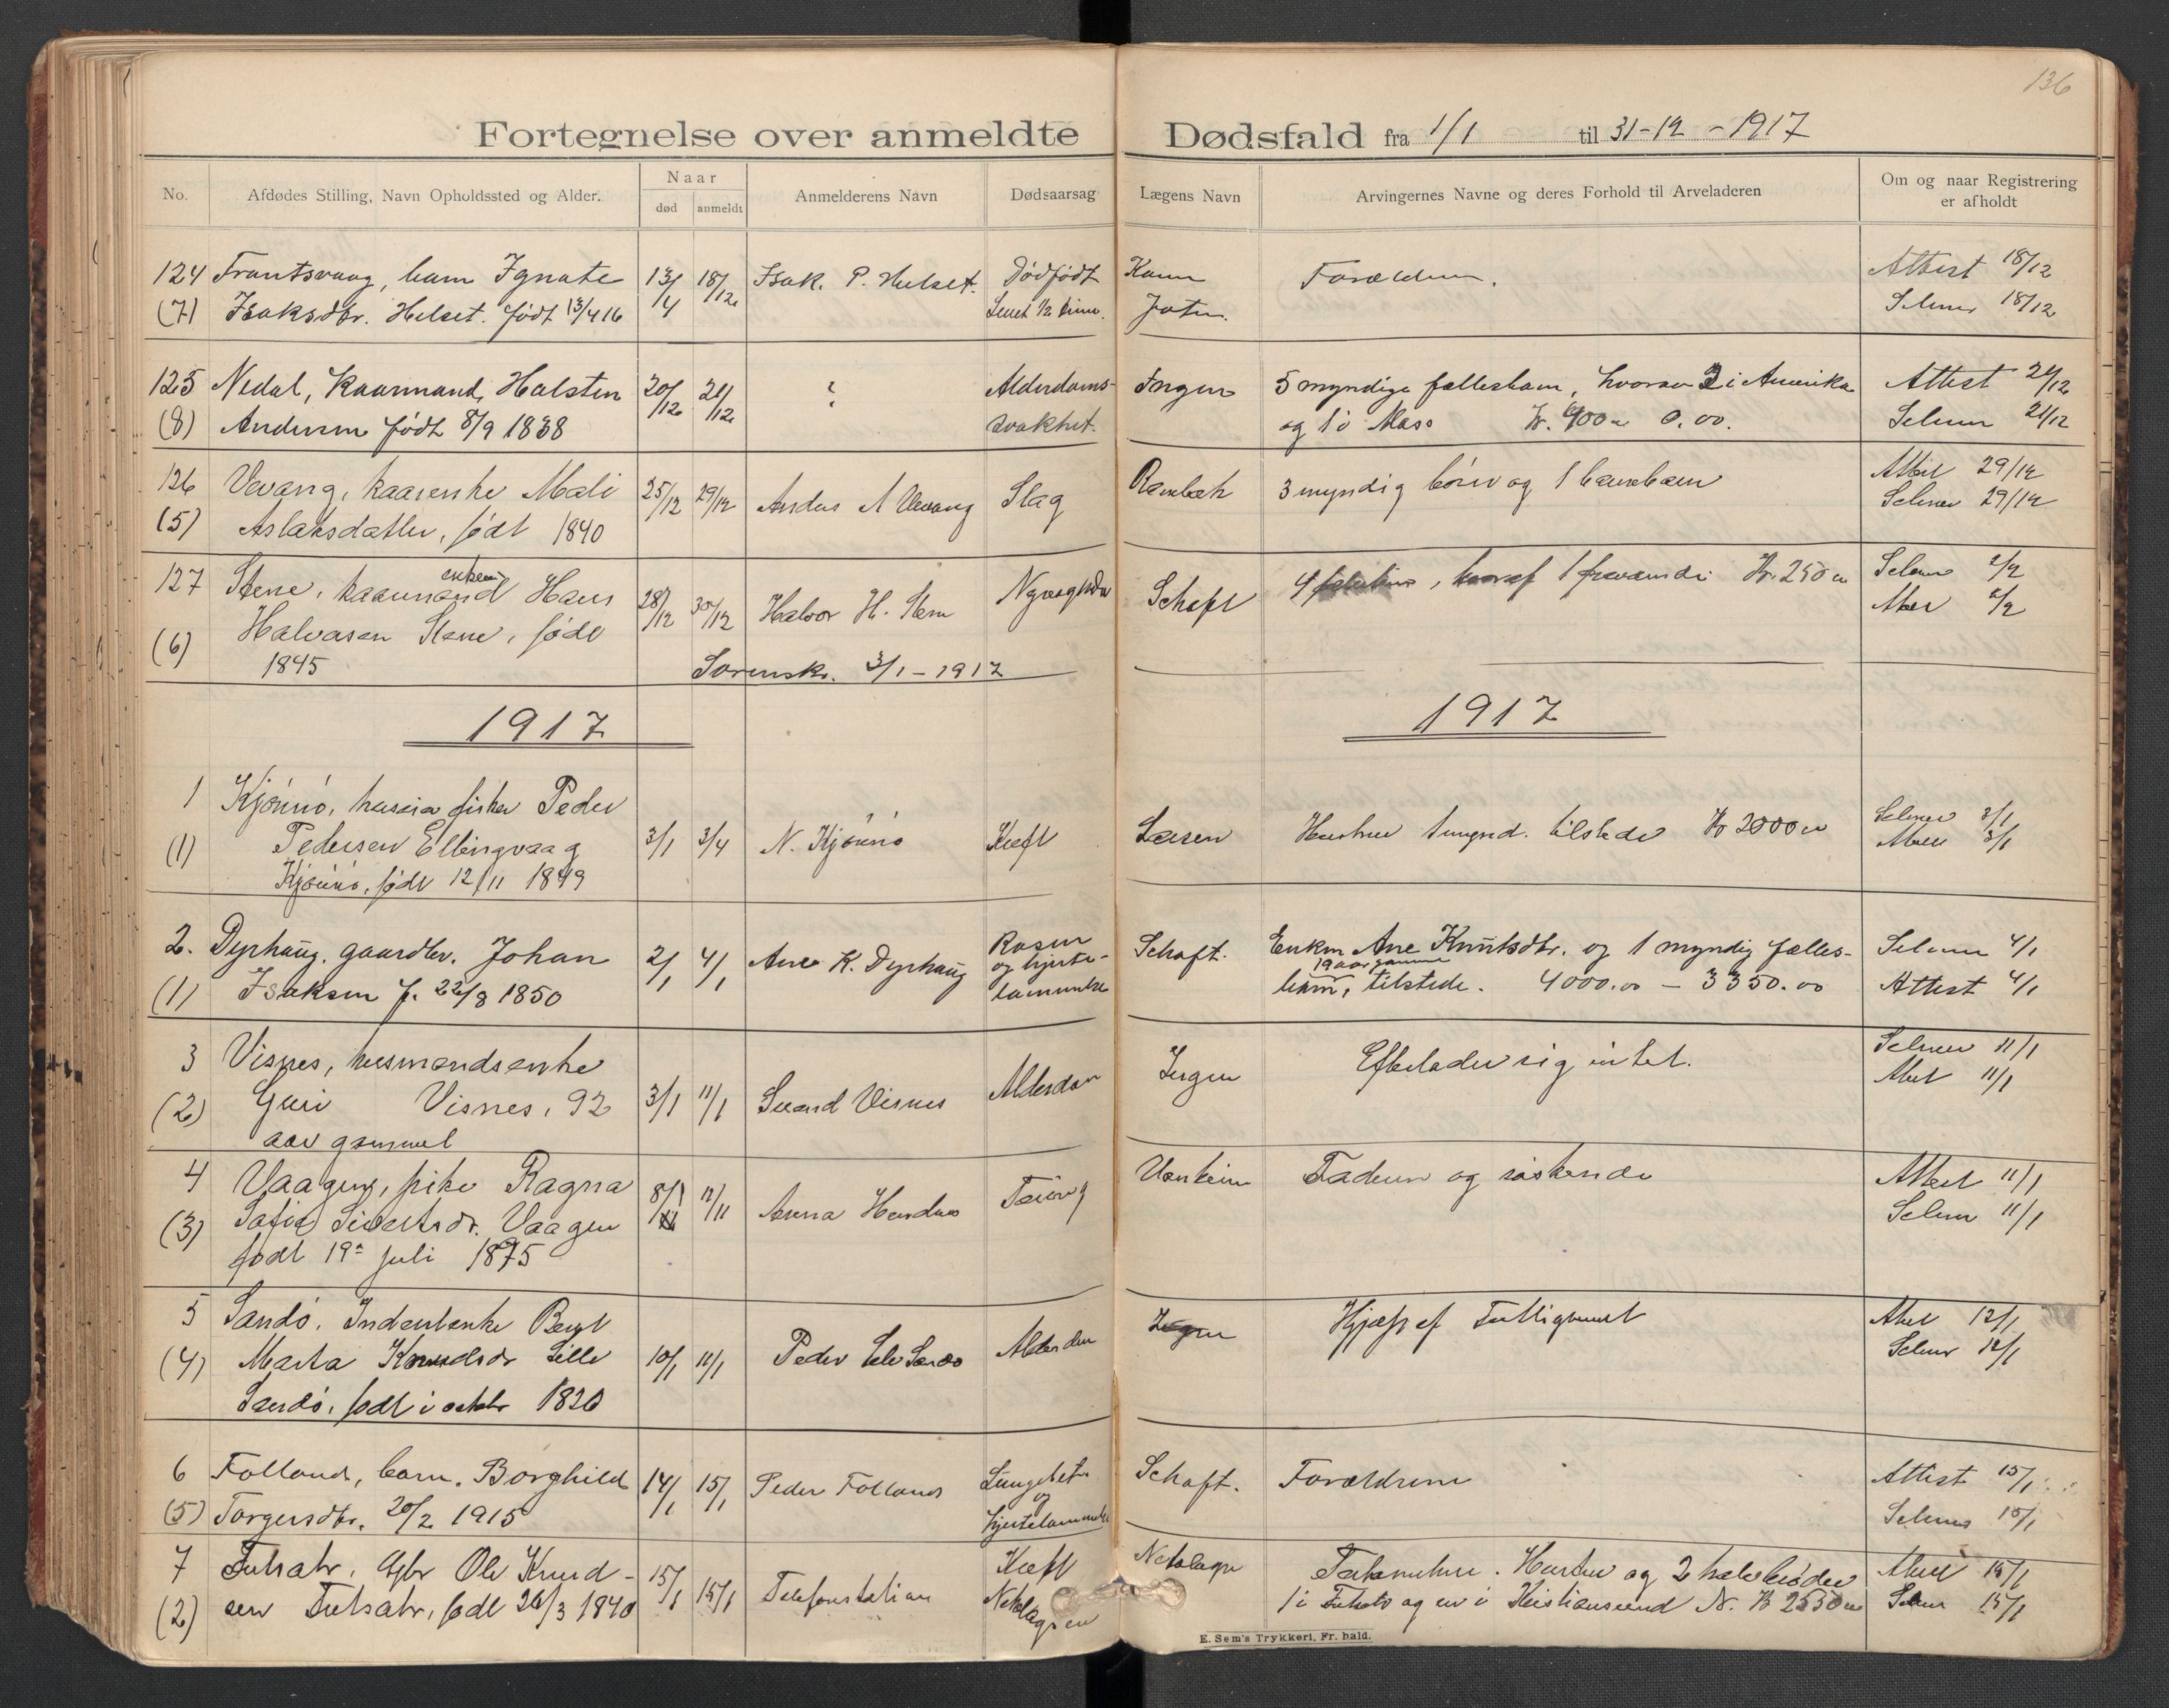 136
Fortegnelse over anmeldte Dødsfald fra 1/1 til 31-12-1917
No. Afdødes Stilling, Navn Opholdssted og Alder. Naar død anmeldt Anmelderens Navn Dødsaarsag Lægens Navn Arvingernes Navne og deres Forhold til Arveladeren Om og naar Registrering er afholdt
124 Frantsvaag, barn Ignate 13/4 18/12 Isak P. Helset. Dødfødt Forældrene. Attest 18/12
(7) Isaksdtr. Helset. født 13/4 16 Levet 1/2 time. Selmer 18/12
125 Nedal, Kaarmand, Halsten 20/12 21/12 ? Alderdoms- Ingen 5 myndige fællesbarn, hvorav 3 i Amerika Attest 21/12
(8) Andersen født 8/9 1838 svakhet. og 1 i Moss Kr. 400 0.00. Selmer 21/12
126 Vevang, kaarenke Mali 25/12 29/12 Anders A Vevang Slag Rambech 3 myndig børn og 1 barnebarn Attest 29/12
(5) Aslaksdatter, født 1840 Selmer 29/12
127 Stene, kaarmand enkem. Hans 28/12 30/12 Halvor H. Stene Schaft 1 Kr. 250 Selmer 2/2
(6) Halvorsen Stene, født Attest 2/2
1845 Sorensk. 3/1 - 1917
1917 1917
1 Kjønnø, fisker Peder 3/1 3/1 N. Kjønnø Kræft Larsen Hustru tilstede Kr 2000 Selmer 3/1
(1) Pedersen Ellingvaag Attest 3/1
Kjønnø, født 12/11 1849
2. Dyrhaug, gaardbr. Johan 2/1 4/1 Ane K. Dyrhaug Rosen og hjerte- lammelse Schaft. Enken Ane Knutsdtr. og 1 myndig fælles- Selmer 4/1
(1) Isaksen f. 22/8 1850 barn, 19 aar gammel tilstede. 4000.00 - 3350.00 Attest 4/1
3 Visnes, husmandsenke 3/1 11/1 Visnes Alderdom Ingen Efterlader sig intet. Selmer 11/1
(2) Guri Visnes, 92 Attest 11/1
aar gammel
4 Vaagen, pike Ragna 8/1 11/1 Anna Tæring Faderen og søskende Attest 11/1
(3) Sofie Sivertsdr. Vaagen Selmer 11/1
født 19de juli 1875
5 Sandø, Enke Beret 10/1 11/1 Peder Sandø Alderdom Ingen Hjælp af Fattigvæsenet Attest 12/1
(4) Marta Knudsdr Lille Selmer 12/1
Sandø, født i oktobr 1820
6 Folland, barn. Borghild 14/1 15/1 Peder Folland Lungebet. og hjertelammelse Schaft. Forældrene Attest 15/1
(5) Torgersdtr. 20/2 1915 Selmer 15/1
7 Futsætr, Gbr Ole Knud- 15/1 15/1 Telefonstation Kræft Hustru og 2 halvbrødre Attest 15/1
(2) sen Futsætr, født 26/3 1840 1 i og en i Kristiansund N. Kr 2550 Selmer 15/1
E. Sem's Trykkeri, Fr.hald.